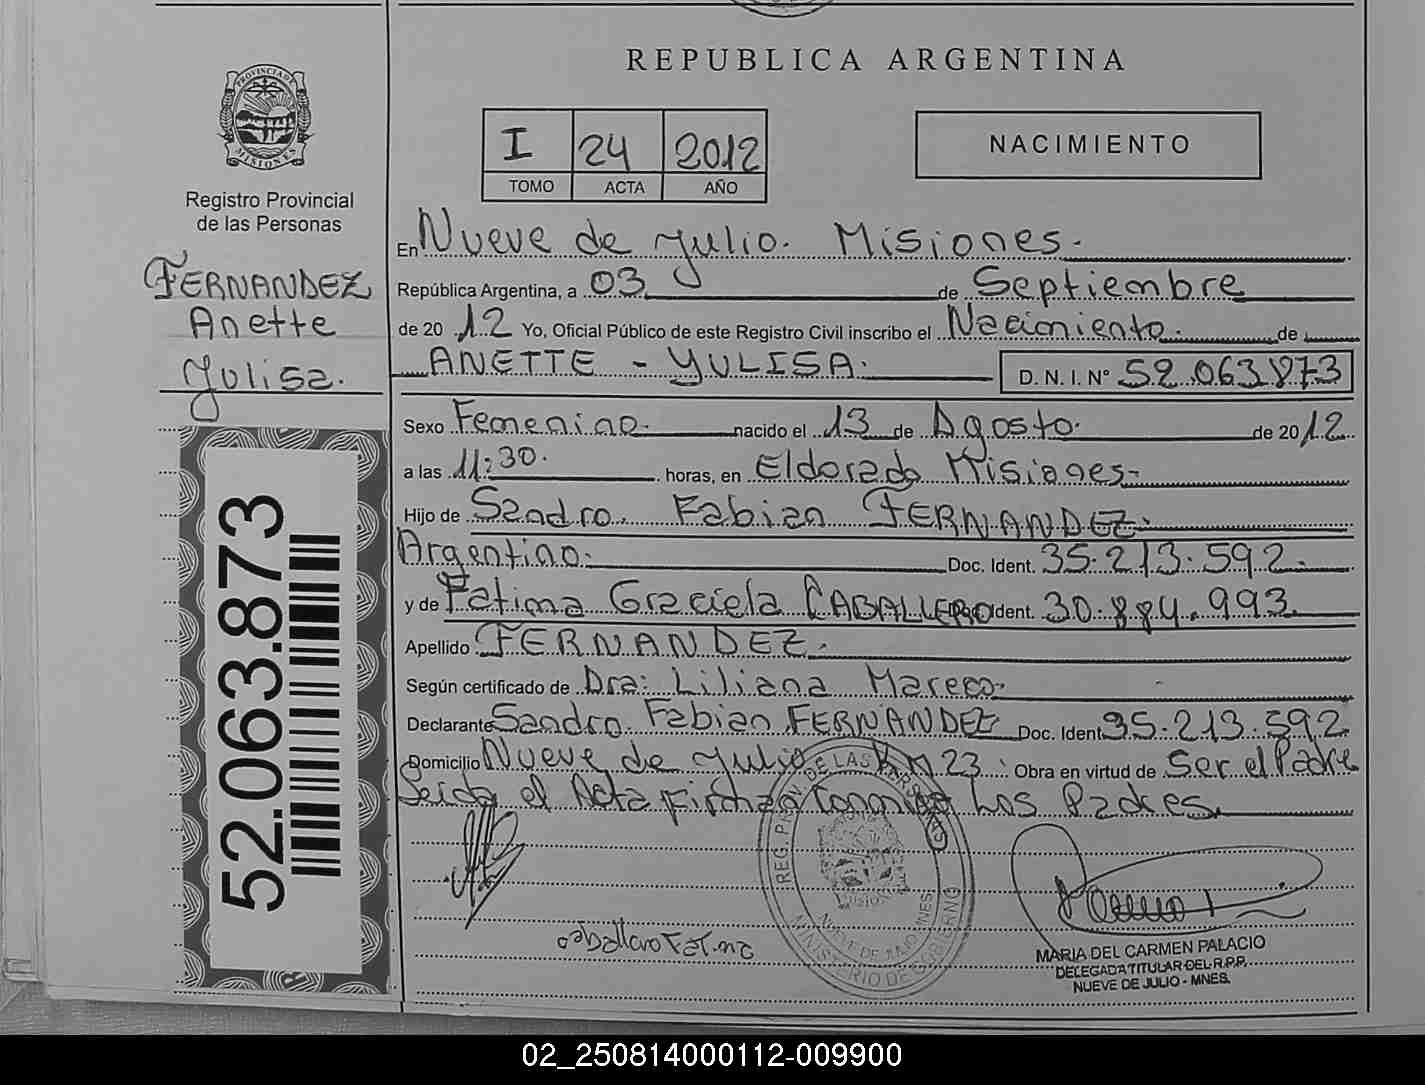 REPUBLICA ARGENTINA
PROVINCIA DE
MISIONES
Registro Provincial
de las Personas
FERNANDEZ
Anette
Yulisa.
52.063.873
I 24 2012
TOMO ACTA AÑO
NACIMIENTO
En Nueve de Julio. Misiones.
República Argentina, a 03 de Septiembre
de 2012 Yo, Oficial Público de este Registro Civil inscribo el Nacimiento. de
ANETTE - YULISA. D. N. I. N° 52.063.873
Sexo Femenino. nacido el 13 de Agosto. de 2012
a las 11:30. horas, en Eldorado Misiones-
Hijo de Sandro. Fabian FERNANDEZ.
Argentino. Doc. Ident. 35.213.592.
y de Fatima Graciela CABALLERO Doc. Ident. 30.884.993.
Apellido FERNANDEZ.
Según certificado de Dra: Liliana Mareco.
Declarante Sandro. Fabian FERNANDEZ Doc. Ident 35.213.592.
Domicilio Nueve de Julio KM 23. Obra en virtud de Ser el Padre
Leida el Acta Firman Conmigo Los Padres.
REG. PROV. DE LAS PERSONAS
NUEVE DE JULIO MNES
MINISTERIO DE GOBIERNO
Misiones
caballero Fatima
MARIA DEL CARMEN PALACIO
DELEGADA TITULAR DEL R.P.P.
NUEVE DE JULIO - MNES.
02_250814000112-009900